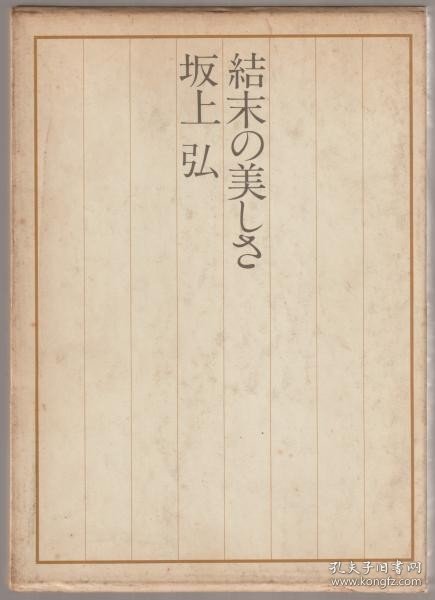 結末の美しさ
坂上 弘
孔夫子旧书网
www.kongfz.com